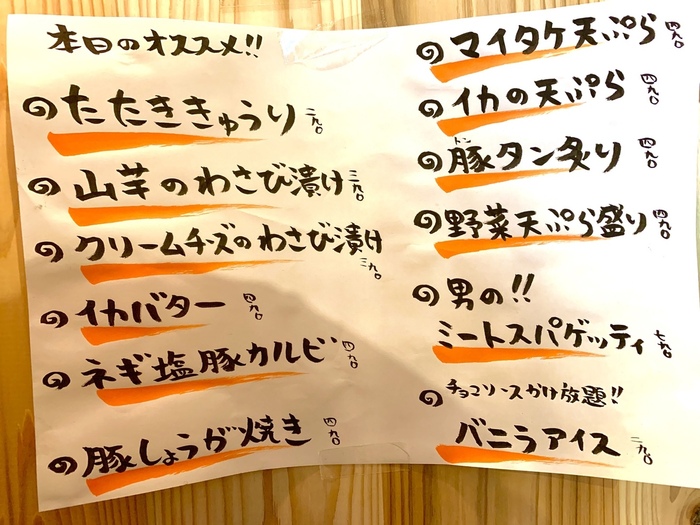 本日のオススメ!!
たたききゅうり 二九〇
山芋のわさび漬け 三九〇
クリームチーズのわさび漬け
三九〇
イカバター 四九〇
ネギ塩豚カルビ 四九〇
豚しょうが焼き 四九〇
マイタケ天ぷら 四九〇
イカの天ぷら 四九〇
トン
豚タン炙り 四九〇
野菜天ぷら盛り 四九〇
男の!!
ミートスパゲッティ 七九〇
チョコソースかけ放題!!
バニラアイス 二九〇